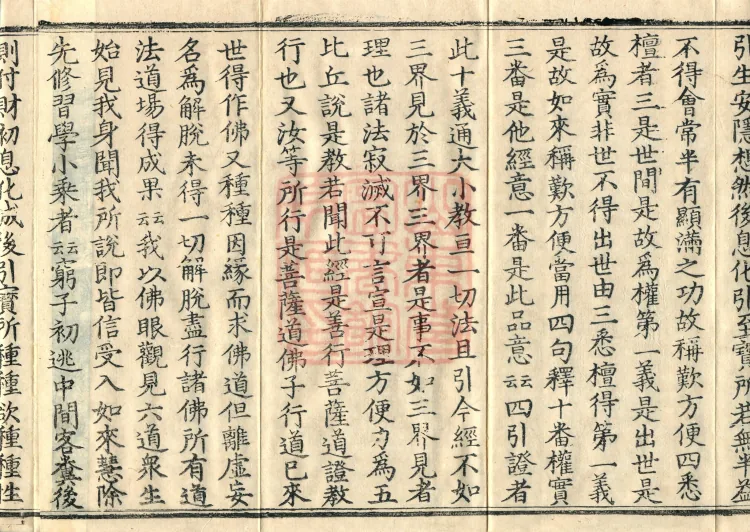 引生安隱想然後息化引至寶所若無半益
不得會常半有顯滿之功故稱歎方便四悉
檀者三是世間是故爲權第一義是出世是
故爲實非世不得出世由三悉檀得第一義
是故如來稱歎方便當用四句釋十番權實
三番是他經意一番是此品意云云四引證者
此十義通大小教亘一切法且引今經不如
三界見於三界三界者是事不如三界見者
理也諸法寂滅不可言宣是理方便力爲五
比丘說是教若聞此經是善行菩薩道證教
行也又汝等所行是菩薩道佛子行道已來
世得作佛又種種因緣而求佛道但離虛妄
名爲解脫未得一切解脫盡行諸佛所有道
法道場得成果云云我以佛眼觀見六道衆生
始見我身聞我所說即皆信受入如來慧除
先修習學小乘者云云窮子初逃中間客糞後
則付財初息化城後引寶所種種欲種種性